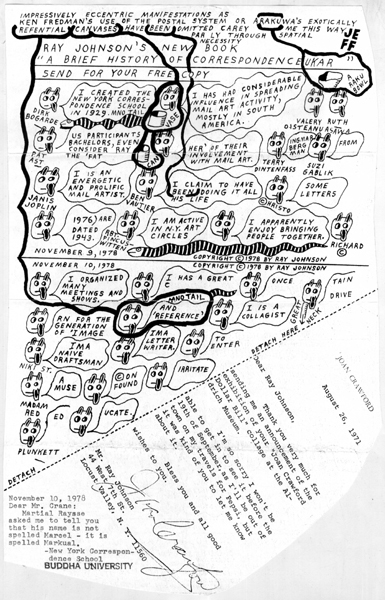 IMPRESSIVELY ECCENTRIC MANIFESTATIONS AS
KEN FREDMAN'S USE OF THE POSTAL SYSTEM OR ARAKUWA'S EXOTICALLY
REFENTIAL CANVASES HAVE BEEN OMITTED CAREY ME THIS WAY
PARTLY THROUGH SPATIAL
NECESSITY
JEFF
RAY JOHNSON'S NEW BOOK
"A BRIEF HISTORY OF CORRESPONDENCE
UKAR"
SEND FOR YOUR FREE COPY
A
RAKU
BOWL
I CREATED THE
NEW YORK CORRES-
PONDENCE SCHOOL
IN 1929.
DIRK
BOGARDE
I HAS HAD CONSIDERABLE
INFLUENCE IN SPREADING
MAIL ART ACTIVITY,
MOSTLY IN SOUTH
AMERICA.
VALERY RUTH
US PARTICIPANTS
BACHELORS, EVEN
CONSIDER 'RAY
THE 'RAT
PAT
AST
HER OF THEIR
INVOLVEMENT
WITH MAIL ART.
TERRY
DINTENFASS
FROM
SUZI
GABLIK
I IS AN
ENERGETIC
AND PROLIFIC
MAIL ARTIST.
JANIS
JOPLIN
BEN
VAUTIER
I CLAIM TO HAVE
BEEN DOING IT ALL
HIS LIFE
SOME
LETTERS
1976) ARE
DATED
1943.
I AM ACTIVE
IN N.Y. ART
CIRCLES
I APPARENTLY
ENJOY BRINGING
PEOPLE TOGETHER.
RICHARD
©
NOVEMBER 9, 1978
COPYRIGHT © 1978 BY RAY JOHNSON
NOVEMBER 10, 1978
COPYRIGHT © 1978 BY RAY JOHNSON
I ORGANIZED
MANY
MEETINGS AND
SHOWS.
C HAS A GREAT
ONCE
TAIN
DRIVE
AND
REFERENCE
I IS A
COLLAGIST
GREGORY
PECK
RN FOR THE
GENERATION
OF IMAGE
IMA
LETTER
WRITER,
TO
ENTER
IMA
NAIVE
DRAFTSMAN
NIKI ST.
A
MUSE
© ON
FOUND
IRRITATE
MADAM
RED
ED
UCATE.
PLUNKETT
DETACH
DETACH HERE
JOAN CRAWFORD
August 26, 1971
Dear Ray Johnson
Thank you very much for
sending me an announcement of the
exhibition of your "Joan Crawford
Dollar Bill" collage at the
Museum.
I'm so sorry I won't be
able to get in to see it before the
19th of September. I'll be out of
town on my travels for Pepsi, but
it was kind of you to let me know
about it.
Bless you and all good
wishes to you.
Joan Crawford
Mr. Ray Johnson
44 West 7th St.
Locust Valley, N. Y. 11560
November 10, 1978
Dear Mr. Crane:
Martial Raysse
asked me to tell you
that his name is not
spelled Marcel - it is
spelled Markual.
-New York Correspon-
dence School
BUDDHA UNIVERSITY